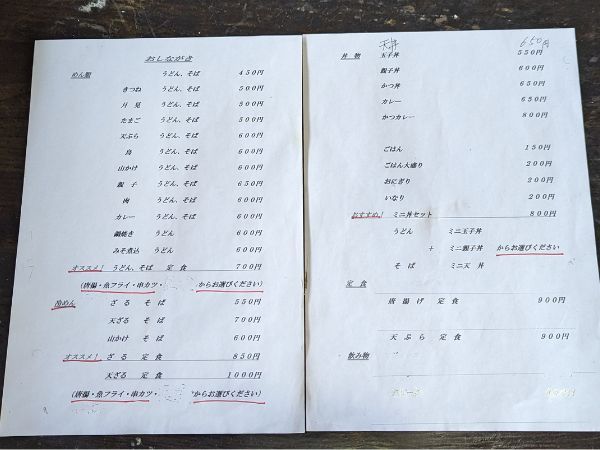 おしながき
めん類 うどん、そば 450円
きつね うどん、そば 500円
月見 うどん、そば 500円
たまご うどん、そば 500円
天ぷら うどん、そば 600円
鳥 うどん、そば 600円
山かけ うどん、そば 600円
親子 うどん、そば 650円
肉 うどん、そば 600円
カレー うどん、そば 600円
鍋焼き うどん 600円
みそ煮込 うどん 600円
オススメ! うどん、そば 定食 700円
(唐揚・魚フライ・串カツ・ からお選びください)
冷めん ざる そば 550円
天ざる そば 700円
山かけ そば 600円
オススメ! ざる 定食 850円
天ざる 定食 1000円
(唐揚・魚フライ・串カツ・ からお選びください)
天丼 650円
丼物 玉子丼 550円
親子丼 600円
かつ丼 650円
カレー 650円
かつカレー 800円
ごはん 150円
ごはん大盛り 200円
おにぎり 200円
いなり 200円
おすすめ! ミニ丼セット 800円
うどん ミニ玉子丼
+ ミニ親子丼 からお選びください
そば ミニ天丼
定食
唐揚げ定食 900円
天ぷら定食 900円
飲み物